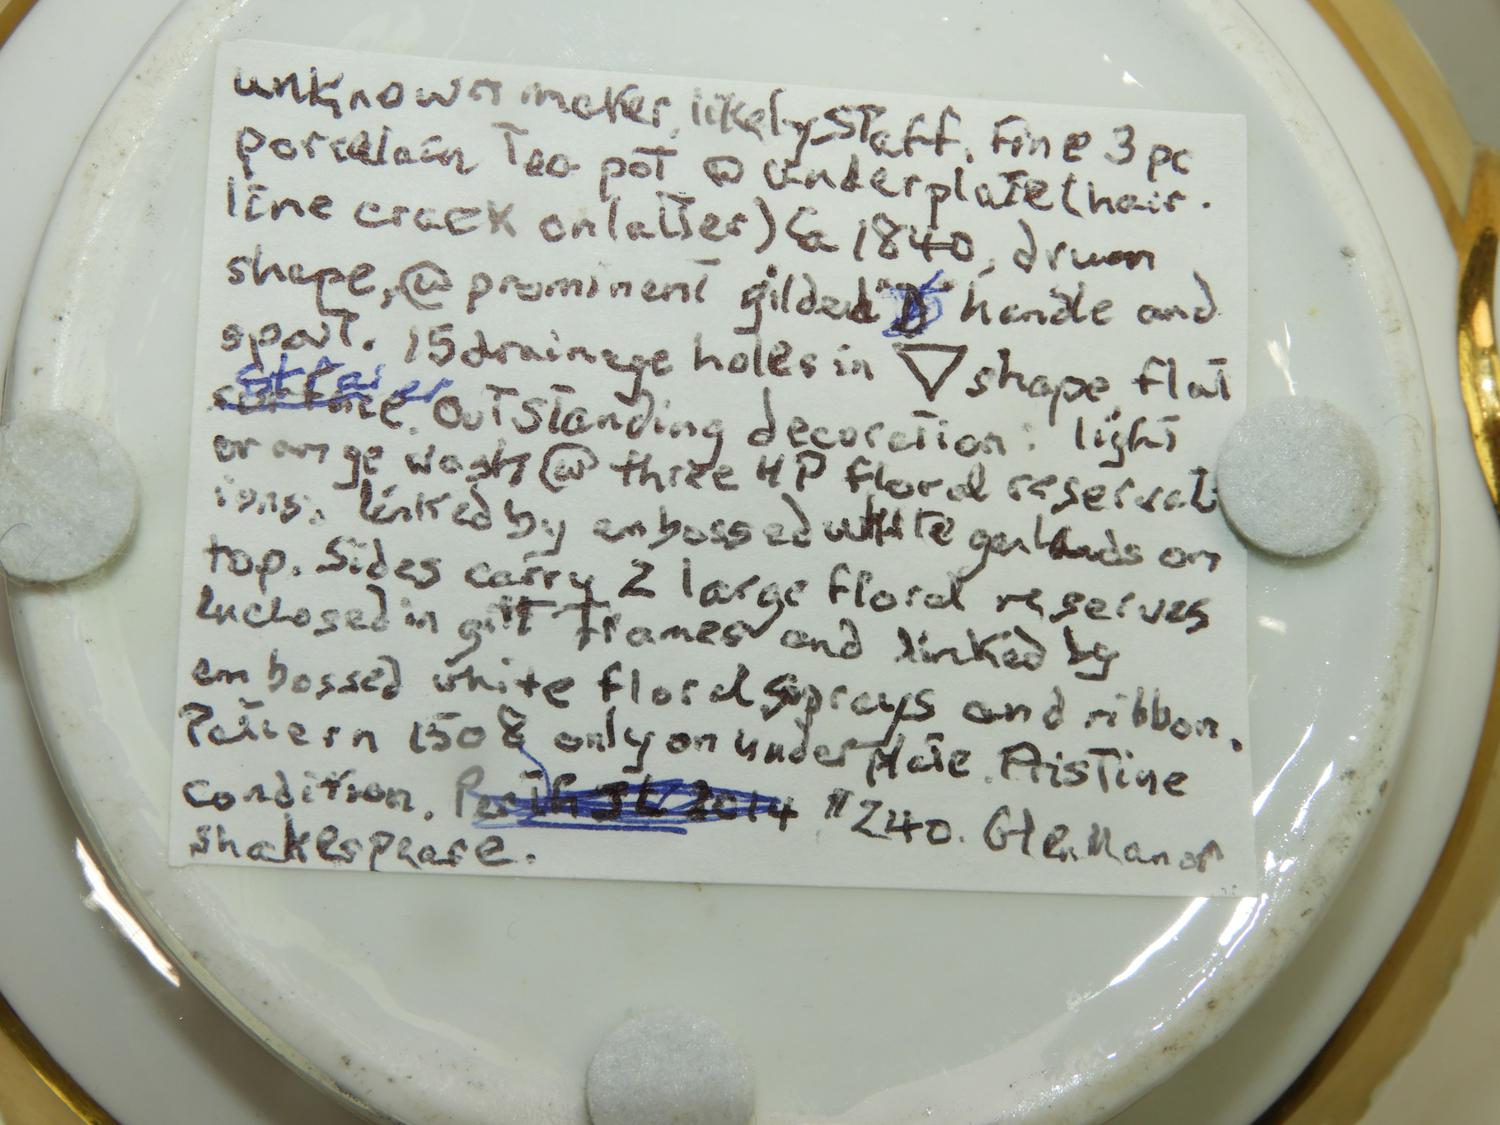 unknown maker, likely Staff. Fine 3 pc
porcelain Tea pot @ underplate (hair-
line crack on latter) Ca 1840, drum
shape, @ prominent gilded "D" handle and
spout. 15 drainage holes in ▽ shape flat
strainer. Outstanding decoration: light
orange wash @ three HP floral reservat
ions. linked by embossed white garlands on
top. Sides carry 2 large floral reserves
Inclosed in gilt frames and linked by
embossed white floral sprays and ribbon.
Pattern 1508 only on underplate. Pristine
condition. #240. Glen Manor
shakespeare.